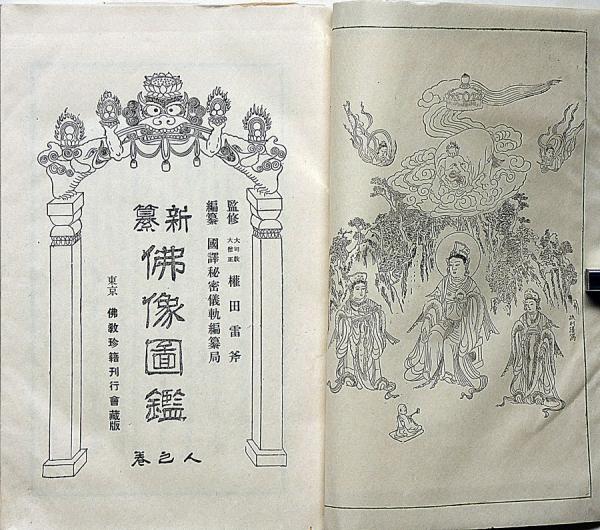 監修 大司教 大僧正 權田雷斧
編纂 國譯秘密儀軌編纂局
新纂
佛像圖鑑
人之巻
東京 佛教珍籍刊行會藏版